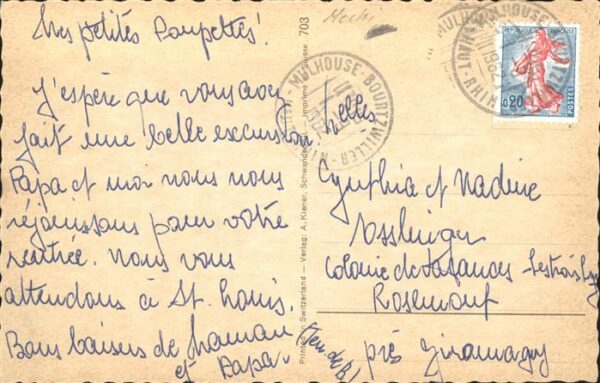 Mes petites Poupettes!
J'espère que vous avez
fait une belle excursion.
Papa et moi nous nous
réjouissons pour votre
rentrée. Nous vous
attendons à St. Louis.
Bons baisers de Maman
et Papa.
Printed in Switzerland — Verlag: A. Kiener, Schwanden — Imprimé en Suisse 703
MULHOUSE-BOURTZWILLER
HT-RHIN
MULHOUSE-BOURTZWILLER
HT-RHIN
RÉPUBLIQUE FRANÇAISE
0,20
POSTES
Melles
Cynthia et Nadine
Osslinger
Colonie de Vacances
Rosemont
près Giromagny
(Terr. de B)